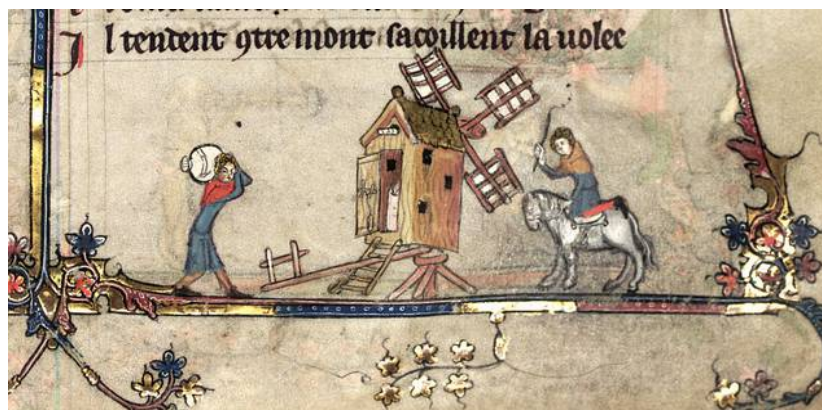 I l tendent ꝯtre mont sacoillent la uolee